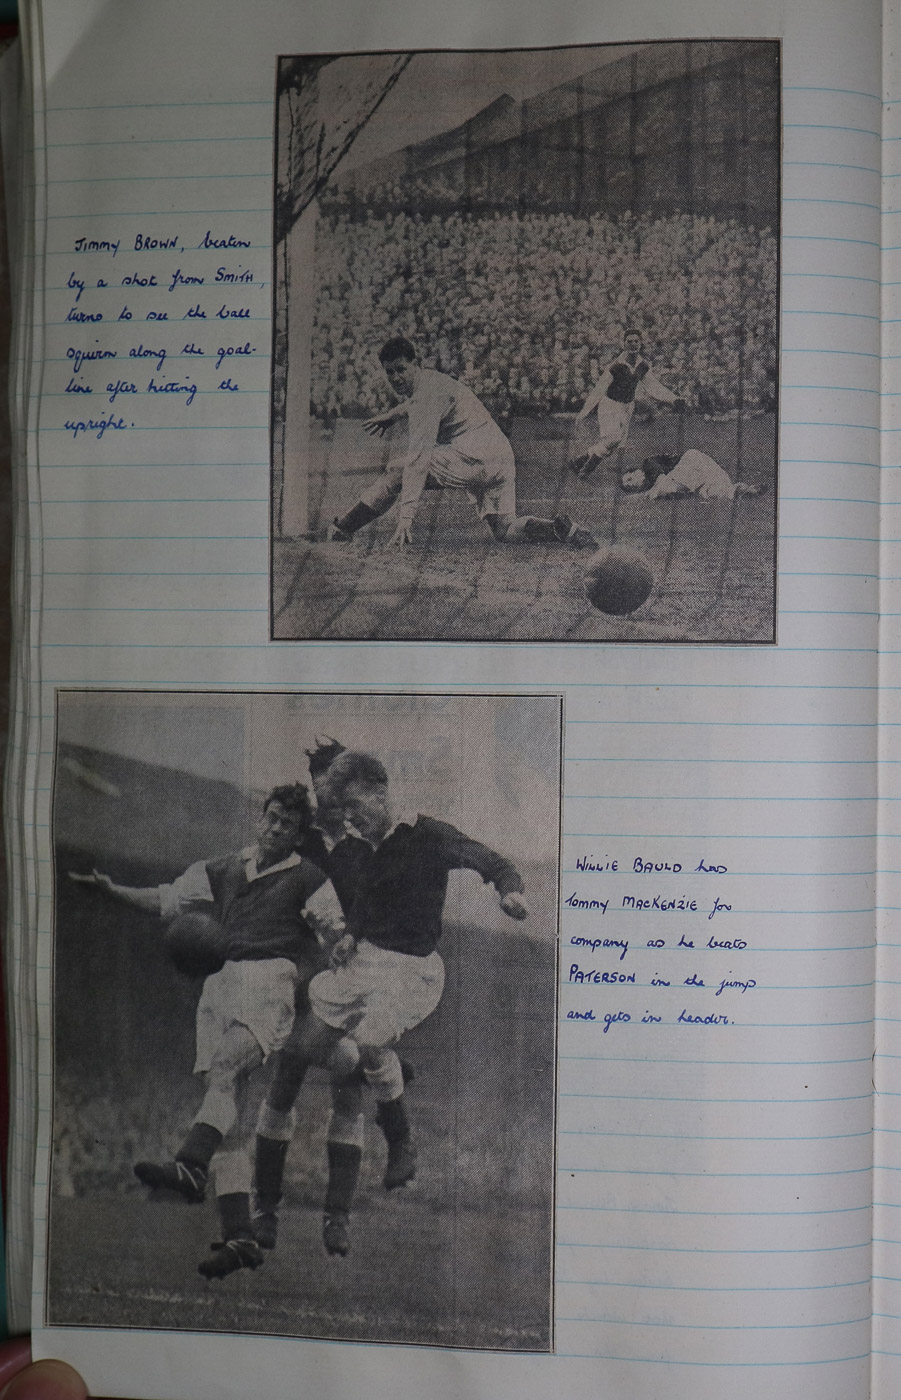 Jimmy BROWN, beaten
by a shot from SMITH,
turns to see the ball
squirm along the goal-
line after hitting the
upright.
WILLIE BAULD has
Tommy MACKENZIE for
company as he beats
PATERSON in the jump
and gets in header.